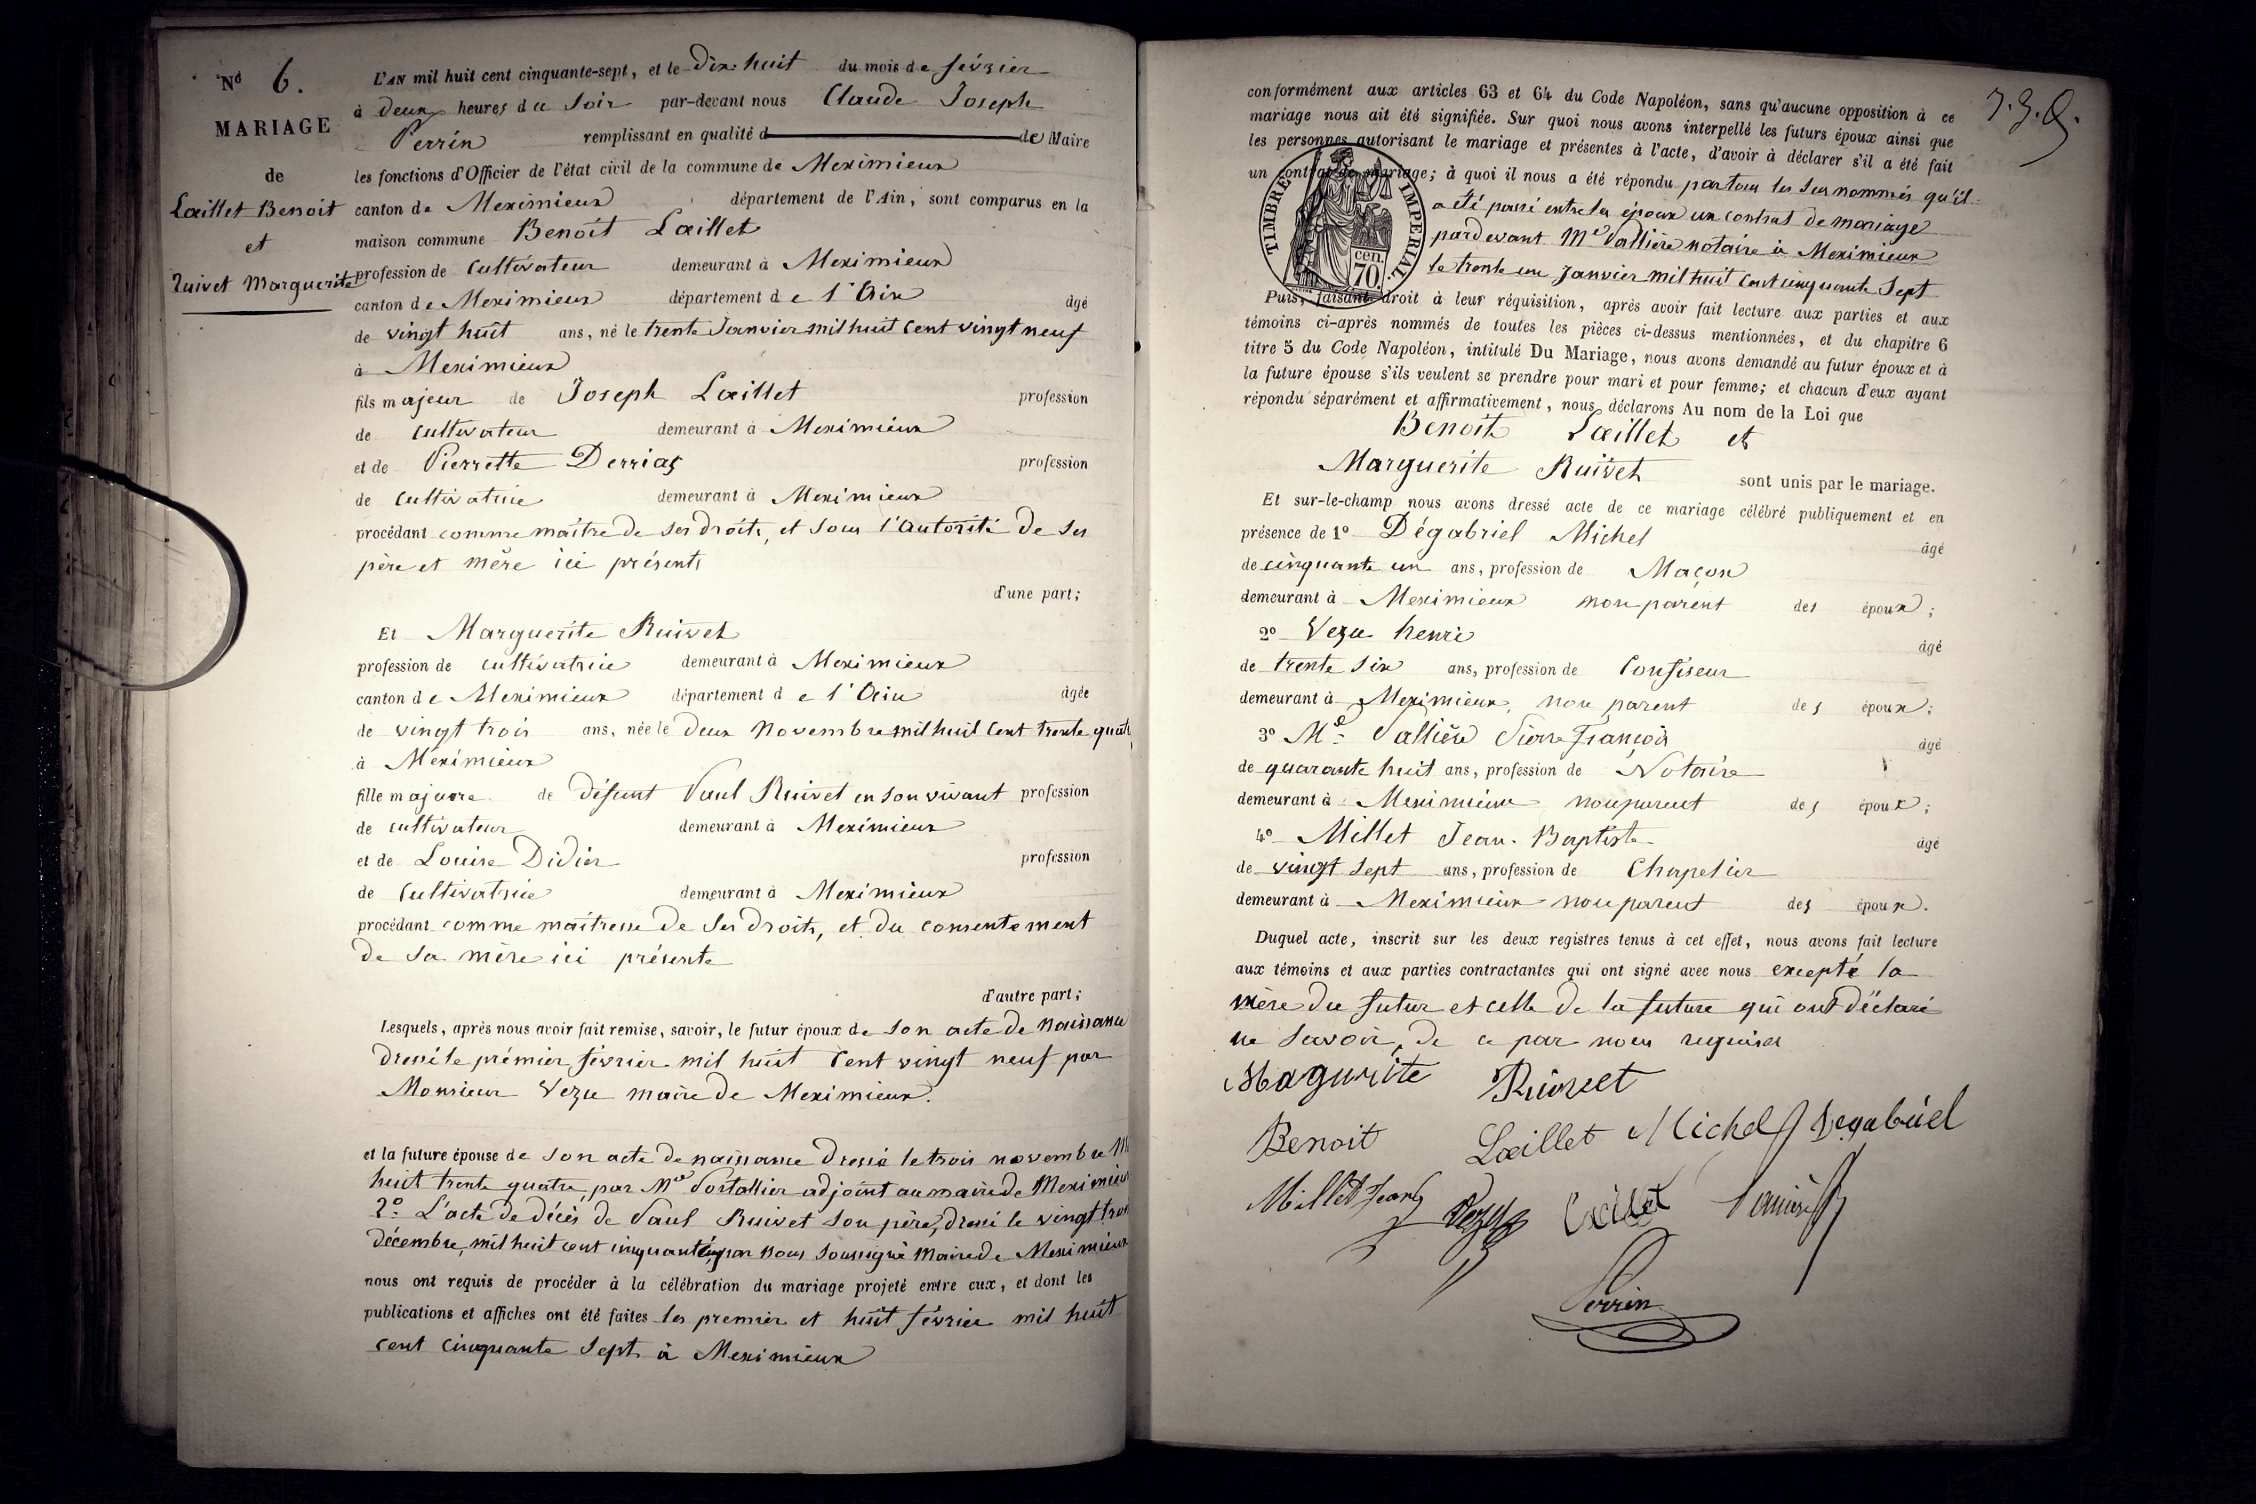 Nº 6.
MARIAGE
de
Lœillet Benoit
et
Ruivet Marguerite
L'AN mil huit cent cinquante-sept, et le dix huit du mois de février
à deux heures du soir par-devant nous Claude Joseph
Perrin remplissant en qualité d de Maire
les fonctions d'Officier de l'état civil de la commune de Meximieux
canton de Meximieux département de l'Ain, sont comparus en la
maison commune Benoit Lœillet
profession de cultivateur demeurant à Meximieux
canton de Meximieux département de l'Ain âgé
de vingt huit ans, né le trente Janvier mil huit cent vingt neuf
à Meximieux
fils majeur de Joseph Lœillet profession
de cultivateur demeurant à Meximieux
et de Pierrette Derrias profession
de cultivatrice demeurant à Meximieux
procédant comme maître de ses droits, et sous l'autorité de ses
père et mère ici présents
d'une part;
Et Marguerite Ruivet
profession de cultivatrice demeurant à Meximieux
canton de Meximieux département de l'Ain âgée
de vingt trois ans, née le deux Novembre mil huit cent trente quatre
à Meximieux
fille majeure de défunt Paul Ruivet en son vivant profession
de cultivateur demeurant à Meximieux
et de Louise Didier profession
de cultivatrice demeurant à Meximieux
procédant comme maîtresse de ses droits, et du consentement
de sa mère ici présente
d'autre part;
Lesquels, après nous avoir fait remise, savoir, le futur époux de son acte de naissance
dressé le prémier février mil huit cent vingt neuf par
Monsieur Vezu maire de Meximieux.
et la future épouse de son acte de naissance dressé le trois novembre mil
huit trente quatre, par Mr Portallier adjoint au maire de Meximieux
2º L'acte de décès de Paul Ruivet son père, dressé le vingt trois
décembre mil huit cent cinquante par nous soussigné Maire de Meximieux
nous ont requis de procéder à la célébration du mariage projeté entre eux, et dont les
publications et affiches ont été faites les premier et huit février mil huit
cent cinquante sept à Meximieux
conformément aux articles 63 et 64 du Code Napoléon, sans qu'aucune opposition à ce
mariage nous ait été signifiée. Sur quoi nous avons interpellé les futurs époux ainsi que
les personnes autorisant le mariage et présentes à l'acte, d'avoir à déclarer s'il a été fait
un contrat de mariage; à quoi il nous a été répondu par tous les sus nommés qu'il
a été passé entre les époux un contrat de mariage
pardevant Me Vallière notaire à Meximieux
le trente un Janvier mil huit cent cinquante sept
TIMBRE IMPERIAL.
70.
cen.
Puis, faisant droit à leur réquisition, après avoir fait lecture aux parties et aux
témoins ci-après nommés de toutes les pièces ci-dessus mentionnées, et du chapitre 6
titre 5 du Code Napoléon, intitulé Du Mariage, nous avons demandé au futur époux et à
la future épouse s'ils veulent se prendre pour mari et pour femme; et chacun d'eux ayant
répondu séparément et affirmativement, nous déclarons Au nom de la Loi que
Benoit Lœillet et
Marguerite Ruivet sont unis par le mariage.
Et sur-le-champ nous avons dressé acte de ce mariage célébré publiquement et en
présence de 1º Dégabriel Michel âgé
de cinquante un ans, profession de Maçon
demeurant à Meximieux non parent des époux;
2º Vezu henri âgé
de trente six ans, profession de Confiseur
demeurant à Meximieux, non parent des époux;
3º Me Vallière Pierre François âgé
de quarante huit ans, profession de Notaire
demeurant à Meximieux non parent des époux;
4º Millet Jean-Baptiste âgé
de vingt sept ans, profession de Chapelier
demeurant à Meximieux non parent des époux.
Duquel acte, inscrit sur les deux registres tenus à cet effet, nous avons fait lecture
aux témoins et aux parties contractantes qui ont signé avec nous excepté la
mère du futur et celle de la future qui ont déclaré
ne savoir, de ce par nous requises
Magurite Ruivet
Benoit Lœillet Michel Degabriel
Millet Jean Vezu Lœillet
Perrin